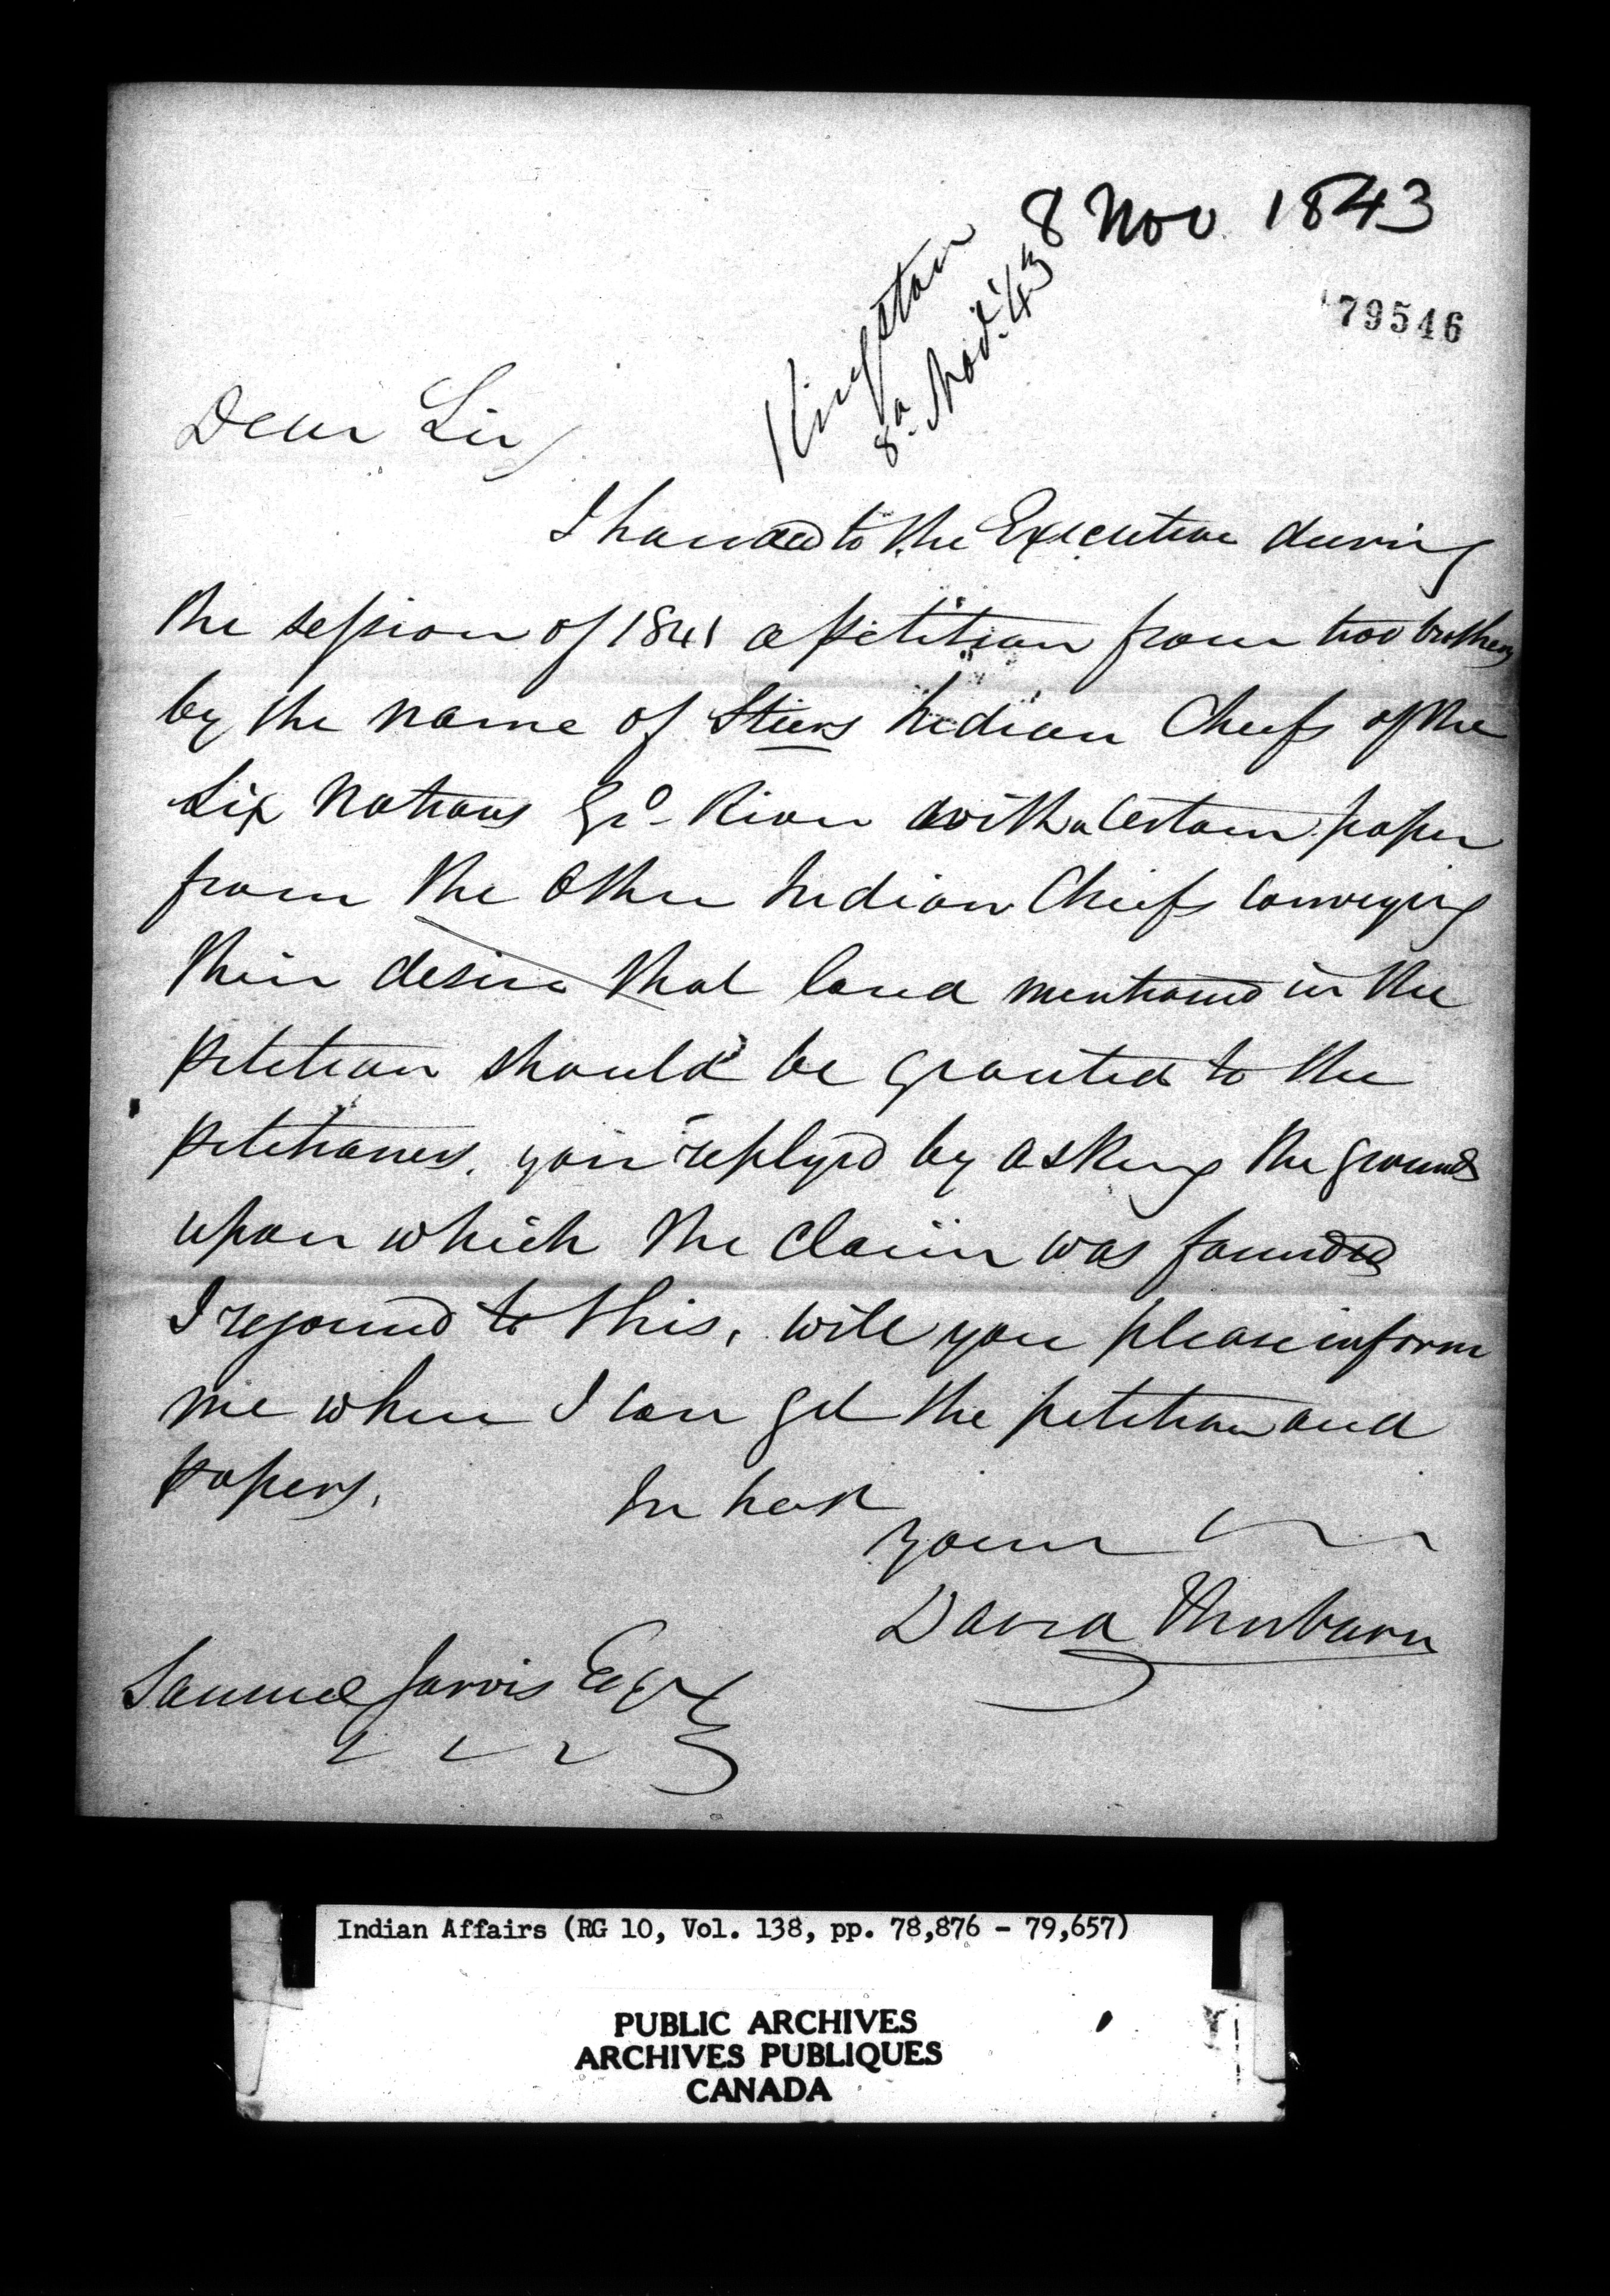 8 Nov 1843
Kingston
8th Nov. '43
79546
Dear Sir,
I handed to the Executive during
the session of 1841 a petition from two brothers
by the name of Steers Indian Chiefs of the
Six Nations Gd. River with a certain paper
from the other Indian Chiefs conveying
their desire that land mentioned in the
petition should be granted to the
petitioners. you replyed by asking the grounds
upon which the claim was founded
I rejoined to this, will you please inform
me when I can get the petition and
papers,
In hast
yours
David Thorburn
Samuel Jarvis Esqr
Indian Affairs (RG 10, Vol. 138, pp. 78,876 - 79,657)
PUBLIC ARCHIVES
ARCHIVES PUBLIQUES
CANADA